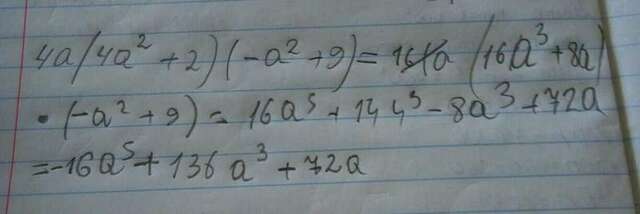 4a(4a² + 2)(-a² + 9) = (16a³ + 8a)
• (-a² + 9) = 16a⁵ + 144³ - 8a³ + 72a
= -16a⁵ + 136a³ + 72a